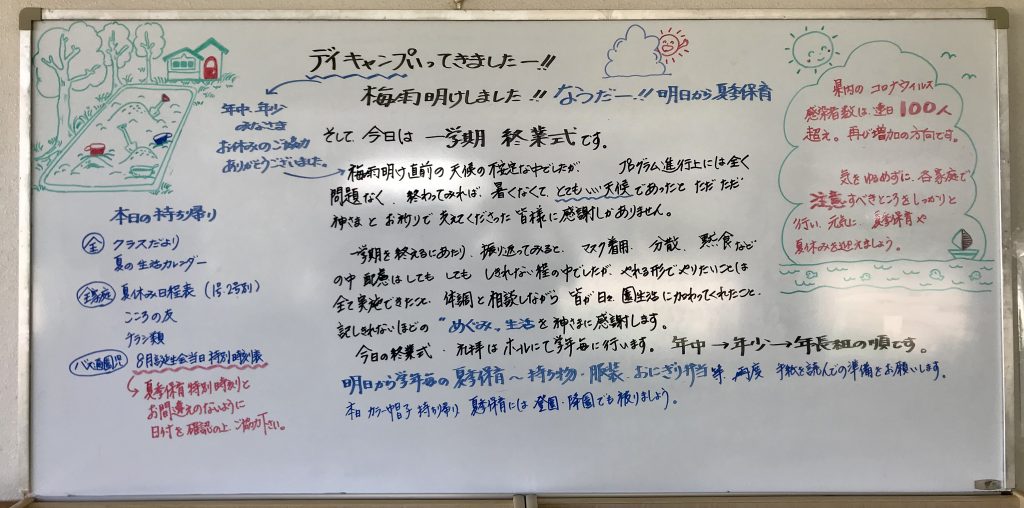 デイキャンプいってきましたー!!
梅雨明けしました!! なつだー!! 明日から夏季保育
年中、年少
のみなさま
お休みのご協力
ありがとうございました。
そして、今日は 一学期 終業式です。
梅雨明け直前の天候の不安定な中でしたが、 プログラム進行上には全く
問題なく、終わってみれば、暑くなくて、とてもいい天候であったと ただただ
神さまとお祈りで支えてくださった皆様に感謝しかありません。
一学期を終えるにあたり、振り返ってみると、マスク着用、分散、黙食など
の中 配慮はしても しても しきれない程の中でしたが、やれる形でやりたいことは
全て実施できたこと、体調と相談しながら 皆が日々、園生活に加わってくれたこと、
記しきれないほどの “めぐみ”生活を神さまに感謝します。
今日の終業式・礼拝はホールにて学年毎に行います。年中→年少→年長組の順です。
明日から学年毎の夏季保育〜持ち物・服装、おにぎり弁当等、再度 手紙を読んでの準備をお願いします。
本日 カラー帽子持ち帰り、夏季保育には登園・降園でも被りましょう。
本日の持ち帰り
全 クラスだより
夏の生活カレンダー
全家庭 夏休み日程表(1号・2号別)
こころの友
チラシ類
バス通園児 8月誕生会当日特別時刻表
夏季保育特別時刻と
お間違えのないように
日付を確認の上、ご協力下さい。
県内のコロナウィルス
感染者数は、連日100人
超え。再び増加の方向です。
気をゆるめずに、各家庭で
注意すべきところをしっかりと
行い、元気に、夏季保育や
夏休みを迎えましょう。